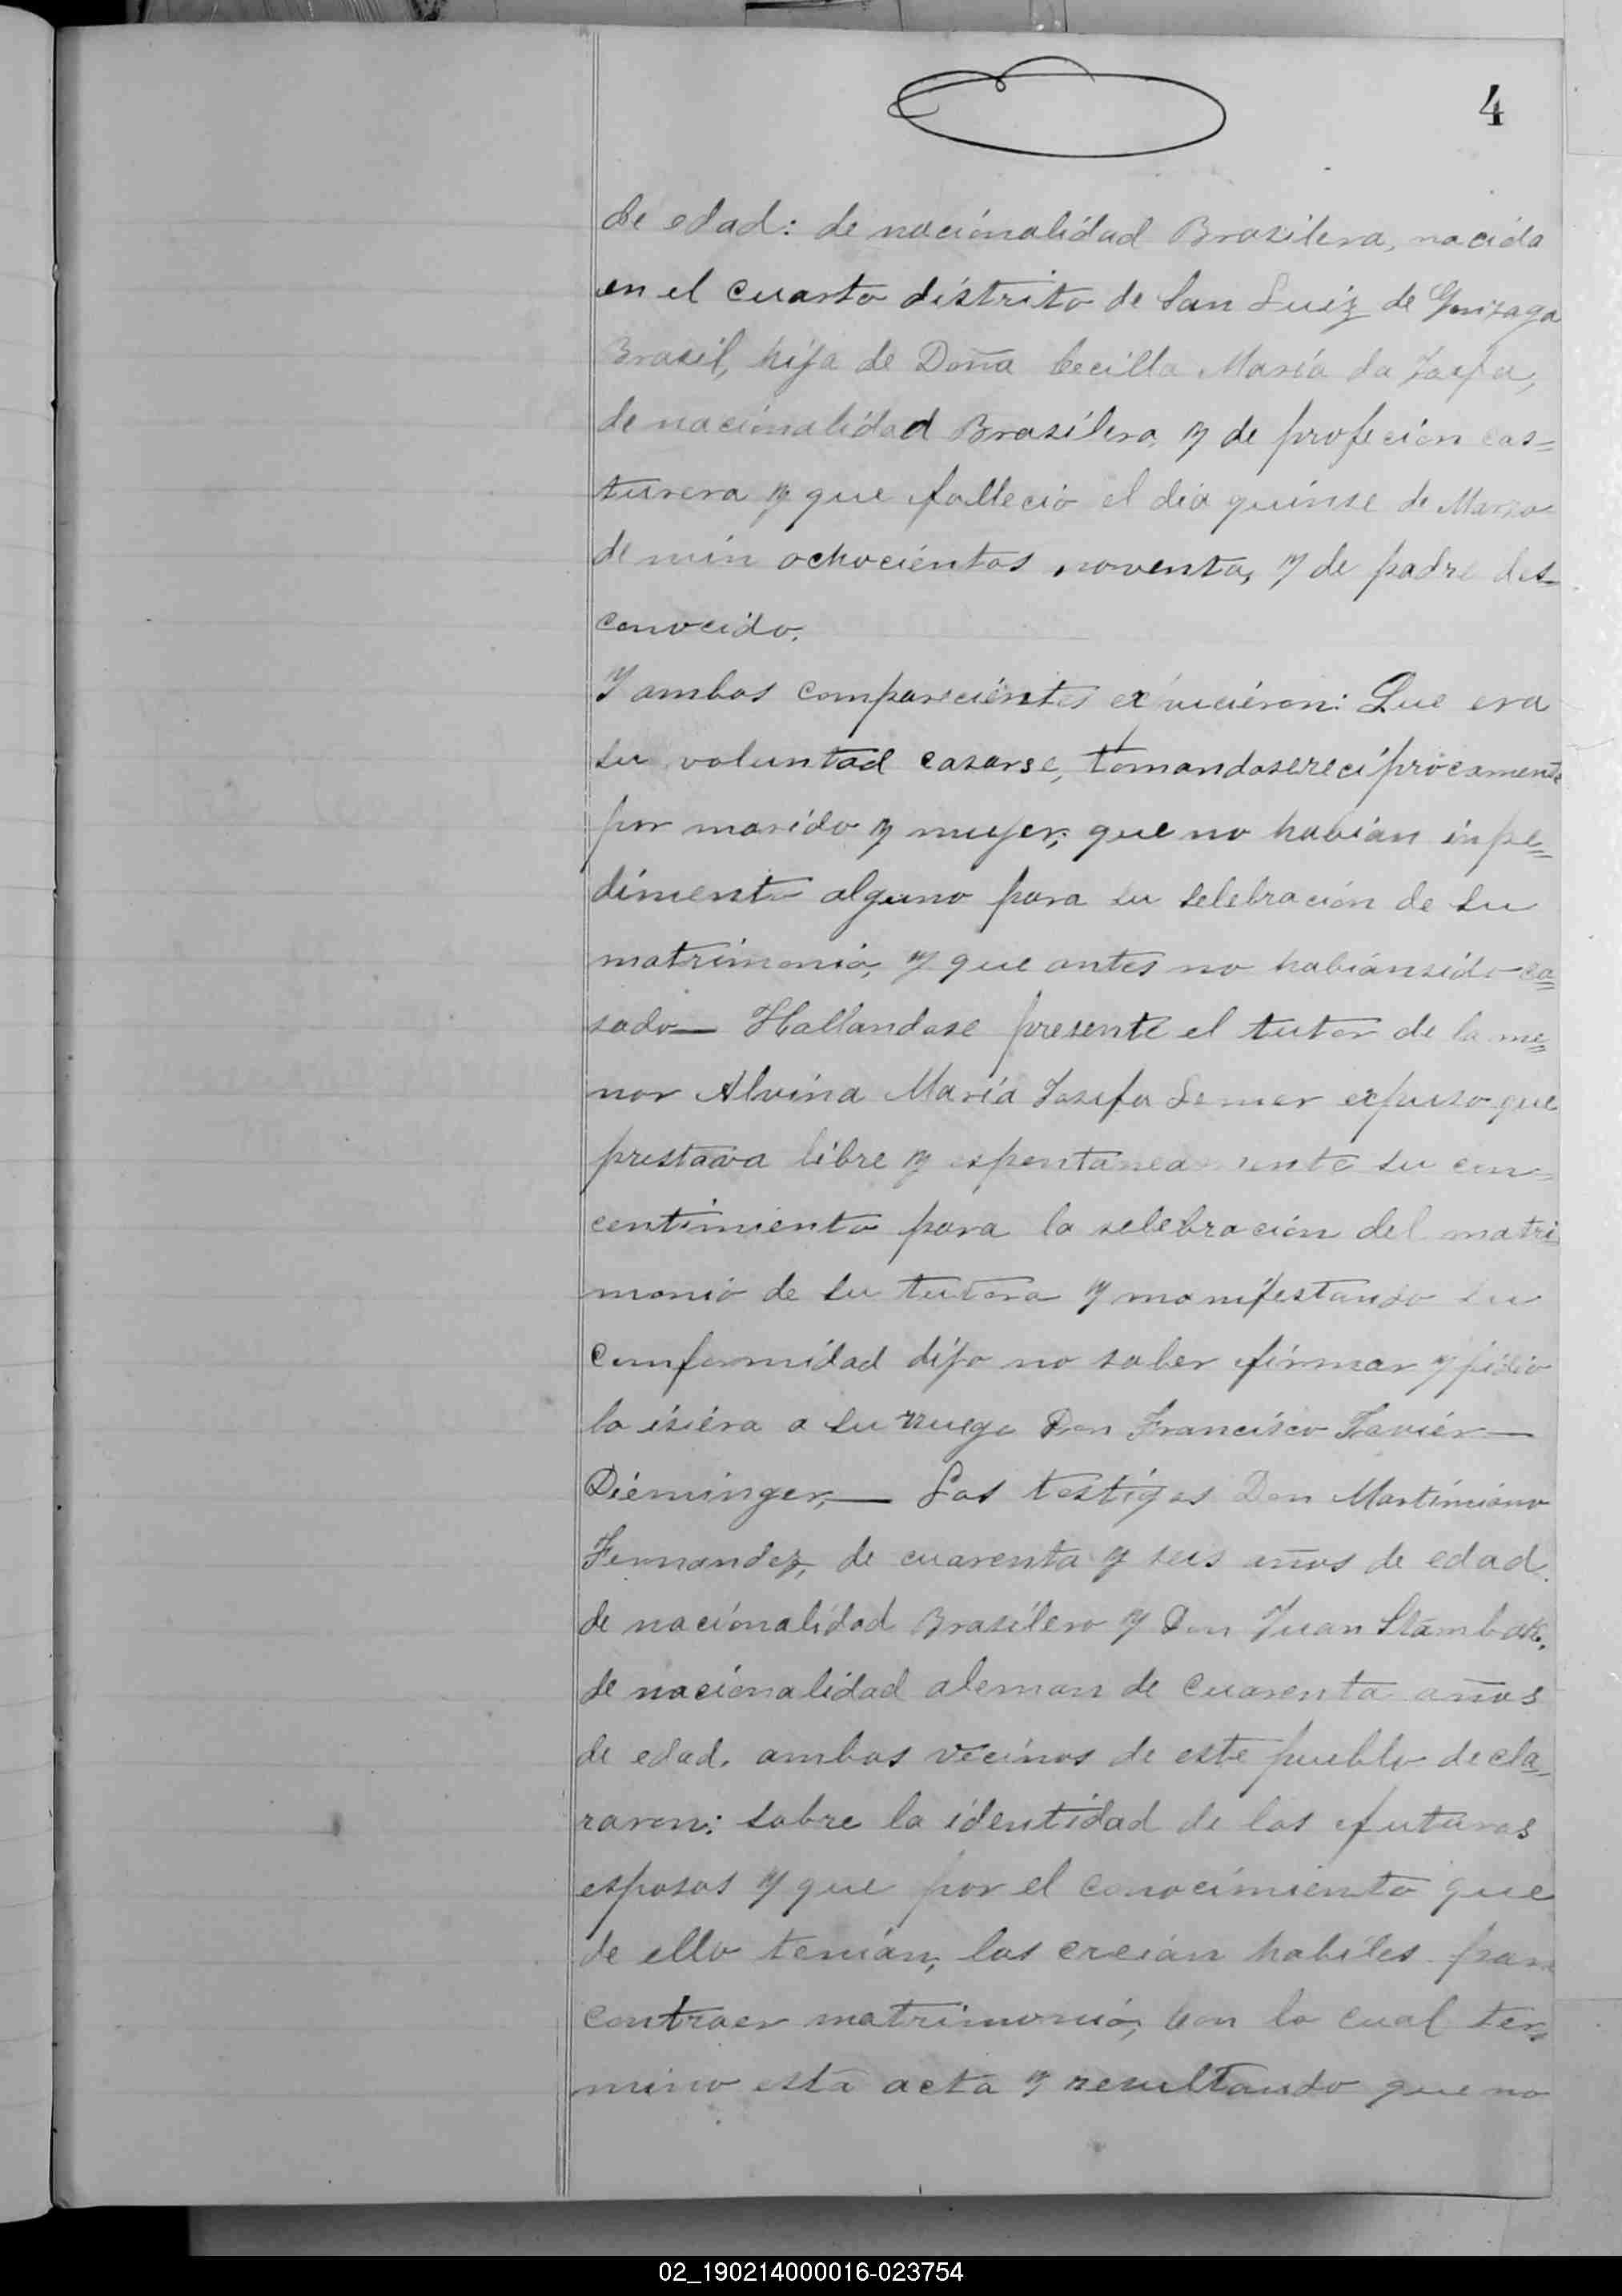 4
de edad: de nacionalidad Brasilera, nacida
en el cuarto distrito de San Luiz de Gonzaga
Brasil, hija de Doña Cecilla María da
de nacionalidad Brasilera, y de profeción cas=
turera y que fallecio el dia quinse de Marzo
de min ochocientos noventa, y de padre des=
conocido.
Y ambos comparecientes Que era
su voluntad casarse, tomandose reciprocamente
por marido y mujer; que no habian inpe=
dimento alguno para su selebración de su
matrimonio, y que antes no habian sido ca=
sado— Hallandose presente el tutor de la me=
nor Alvina María Josefa Lemer expuso que
prestava libre y espontaneamente su con=
centimiento para la selebración del matri
monio de su tutora y manifestando su
comformidad dijo no saber firmar y pidio
lo isiéra a su rruego Don Francisco Xavier—
Diéminger,— Los testigos Don Martimiano
Fernandez, de cuarenta y seis años de edad.
de nacionalidad Brasilero y Don Juan
de nacionalidad aleman de cuarenta años
de edad. ambos vecinos de este pueblo decla=
raron: sobre la identidad de los futuros
esposos y que por el conocimiento que
de ello tenian, los creian habiles para
contraer matrimonio, con lo cual ter=
mino esta acta y resultando que no
02_190214000016-023754